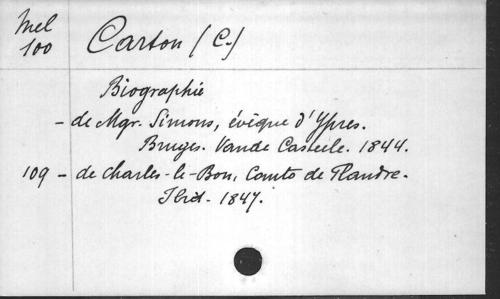 Mel
100
Carton (C.)
Biographie
- de Mgr. Simons, évêque d'Ypres.
Bruges. Vande Casteele. 1844.
109 - de Charles-le-Bon, Comte de Flandre.
Ibid. 1847.